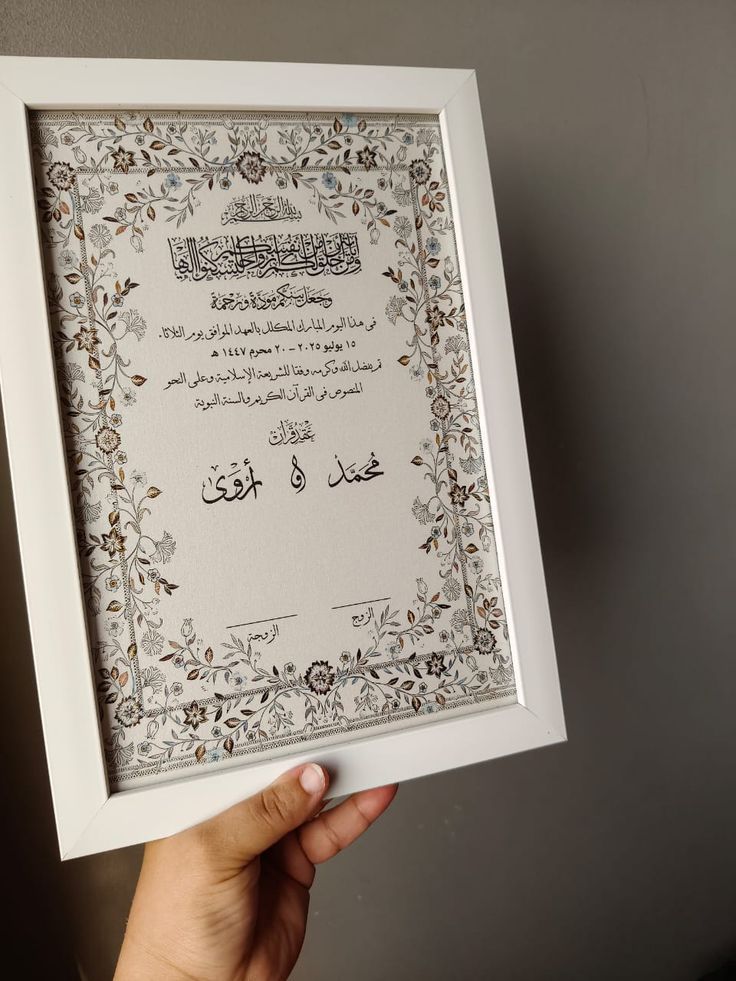 بسم الله الرحمن الرحيم
ومن آياته أن خلق لكم من أنفسكم أزواجا لتسكنوا إليها
وجعل بينكم مودة ورحمة
في هذا اليوم المبارك المكلل بالعهد الموافق يوم الثلاثاء.
١٥ يوليو ٢٠٢٥ - ٢٠ محرم ١٤٤٧ هـ
تم بفضل الله وكرمه وفقا للشريعة الإسلامية وعلى النحو
المنصوص في القرآن الكريم والسنة النبوية
عقد قران
محمد و أروى
الزوج
الزوجة